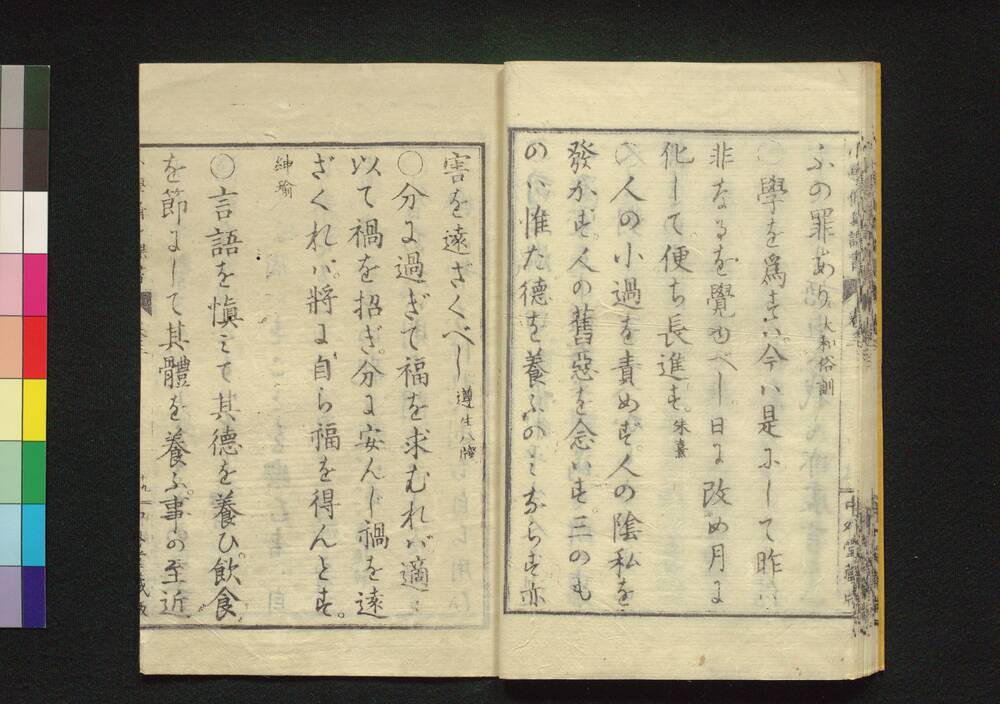 ふの罪あり 大和俗訓
○學を爲すハ今ハ是にして昨ハ
非なるを覺ゆべし日に改め月に
化して便ち長進す。朱熹
○人の小過を責めず人の陰私を
發かず。人の舊惡を念ハず三のも
のハ惟た德を養ふのミならず亦
害を遠ざくべし 遵生八牋
○分に過ぎて福を求むれバ適ミ
以て禍を招ぎ。分に安んじ禍を遠
ざくれバ。將に自ら福を得んとす。
紳瑜
○言語を愼ミて其德を養ひ。飮食
を節にして其體を養ふ。事の至近